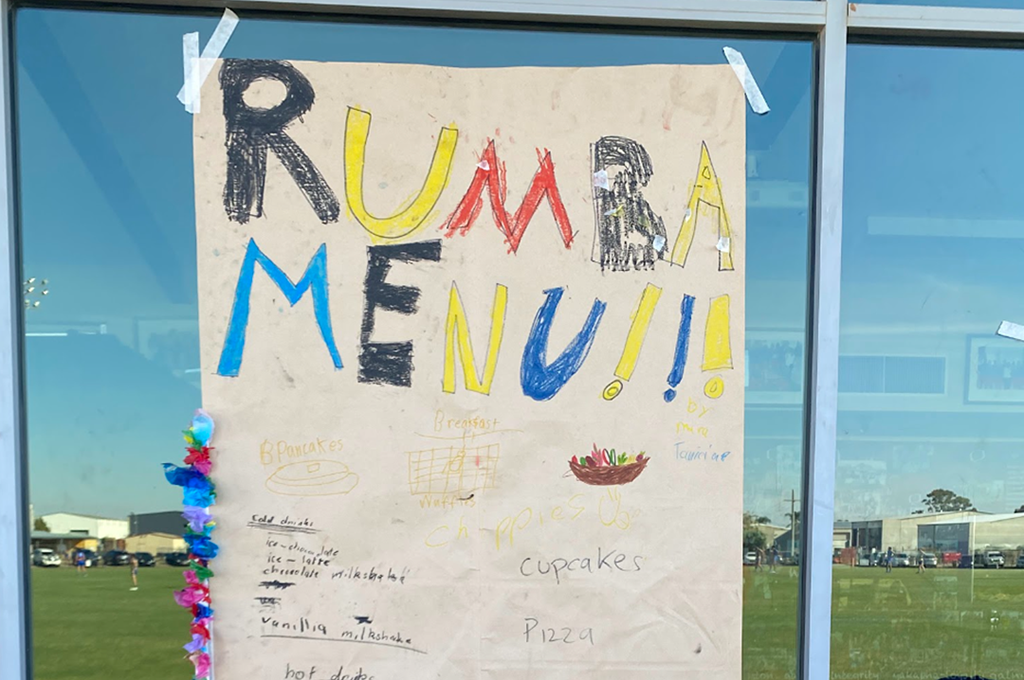 RUMBA
MENU!!!
By
Breakfast
Pancakes
Waffles
chippies
Cold drinks
ice-chocolate
ice-latte
chocolate milkshake
cupcakes
vanillia milkshake
Pizza
hot drinks